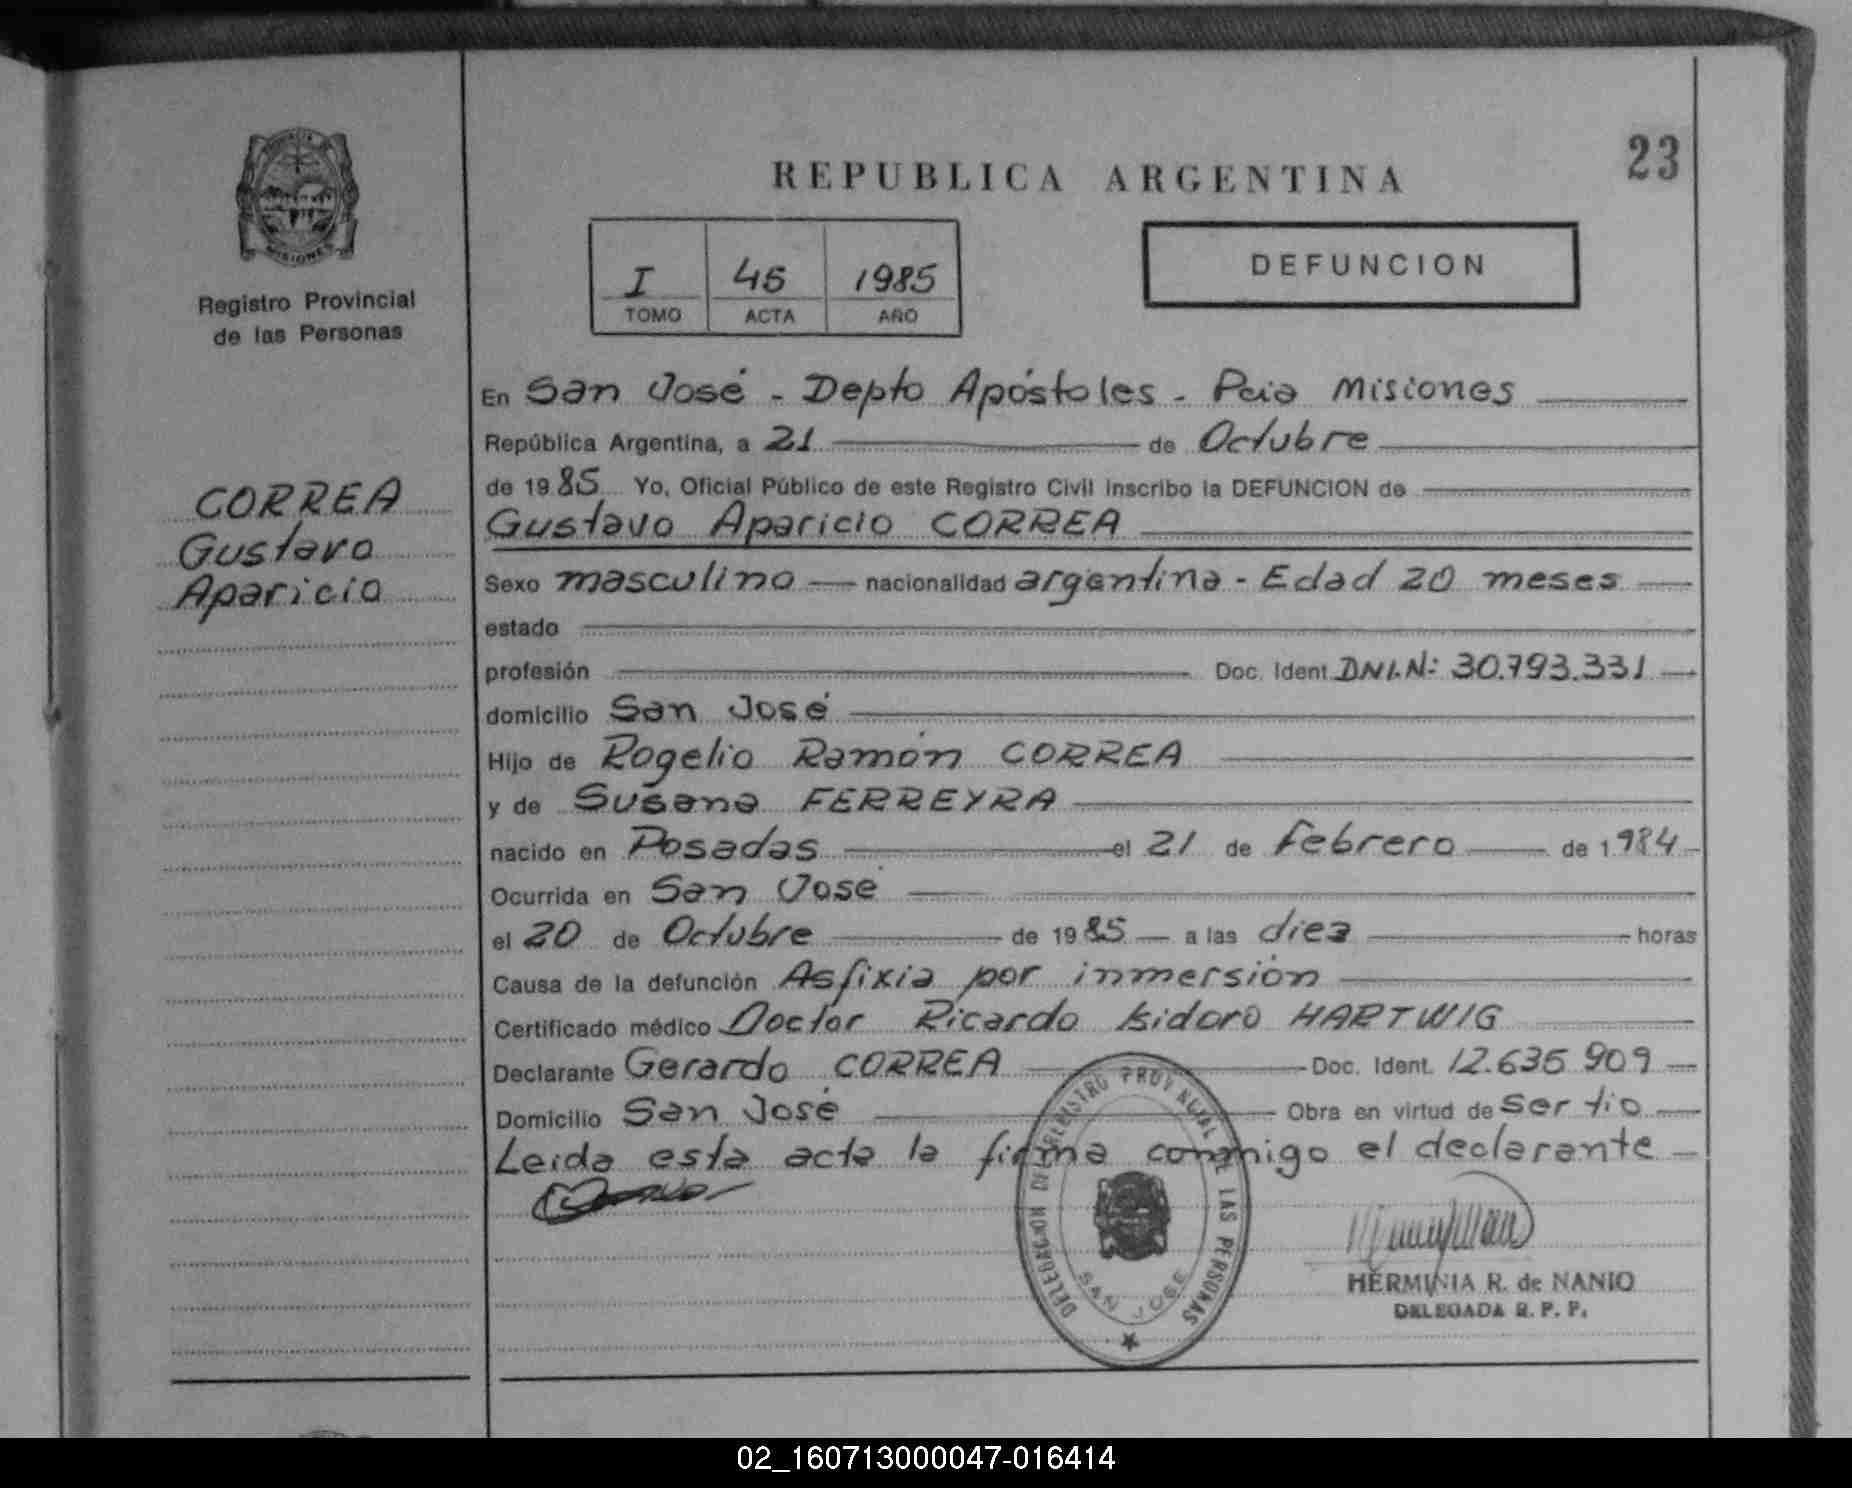 PROVINCIA
MISIONES
Registro Provincial
de las Personas
CORREA
Gustavo
Aparicio
23
REPUBLICA ARGENTINA
I 45 1985
TOMO ACTA AÑO
DEFUNCION
En San José - Depto Apóstoles - Pcia Misiones
República Argentina, a 21 de Octubre
de 1985 Yo, Oficial Público de este Registro Civil inscribo la DEFUNCION de
Gustavo Aparicio CORREA
Sexo masculino nacionalidad argentina - Edad 20 meses
estado
profesión Doc. Ident. DNI.N: 30.793.331
domicilio San José
Hijo de Rogelio Ramón CORREA
y de Susana FERREYRA
nacido en Posadas el 21 de Febrero de 1984
Ocurrida en San José
el 20 de Octubre de 1985 a las diez horas
Causa de la defunción Asfixia por inmersión
Certificado médico Doctor Ricardo Isidoro HARTWIG
Declarante Gerardo CORREA Doc. Ident. 12.635.909
Domicilio San José Obra en virtud de ser tio
Leida esta acta la firma conmigo el declarante
DELEGACION DEL REGISTRO PROVINCIAL DE LAS PERSONAS
SAN JOSE
HERMINIA R. de NANIO
DELEGADA R. P. P.
02_160713000047-016414